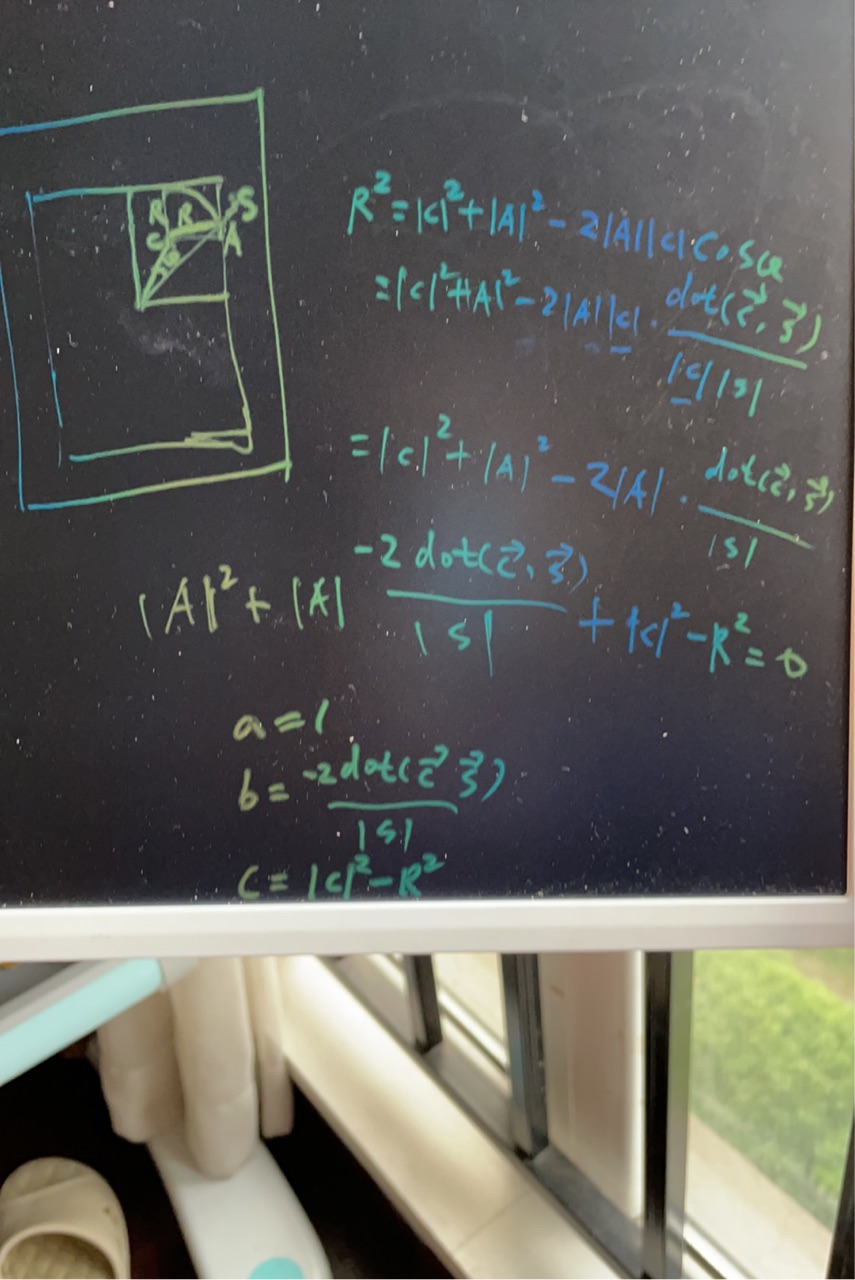 R
R
S
C
A
α
R² = |c|² + |A|² - 2|A||c|cosα
= |c|² + |A|² - 2|A||c| · dot(c⃗, s⃗) / |c||s|
= |c|² + |A|² - 2|A| · dot(c⃗, s⃗) / |s|
|A|² + |A| -2dot(c⃗, s⃗) / |s| + |c|² - R² = 0
a = 1
b = -2dot(c⃗ s⃗) / |s|
C = |c|² - R²